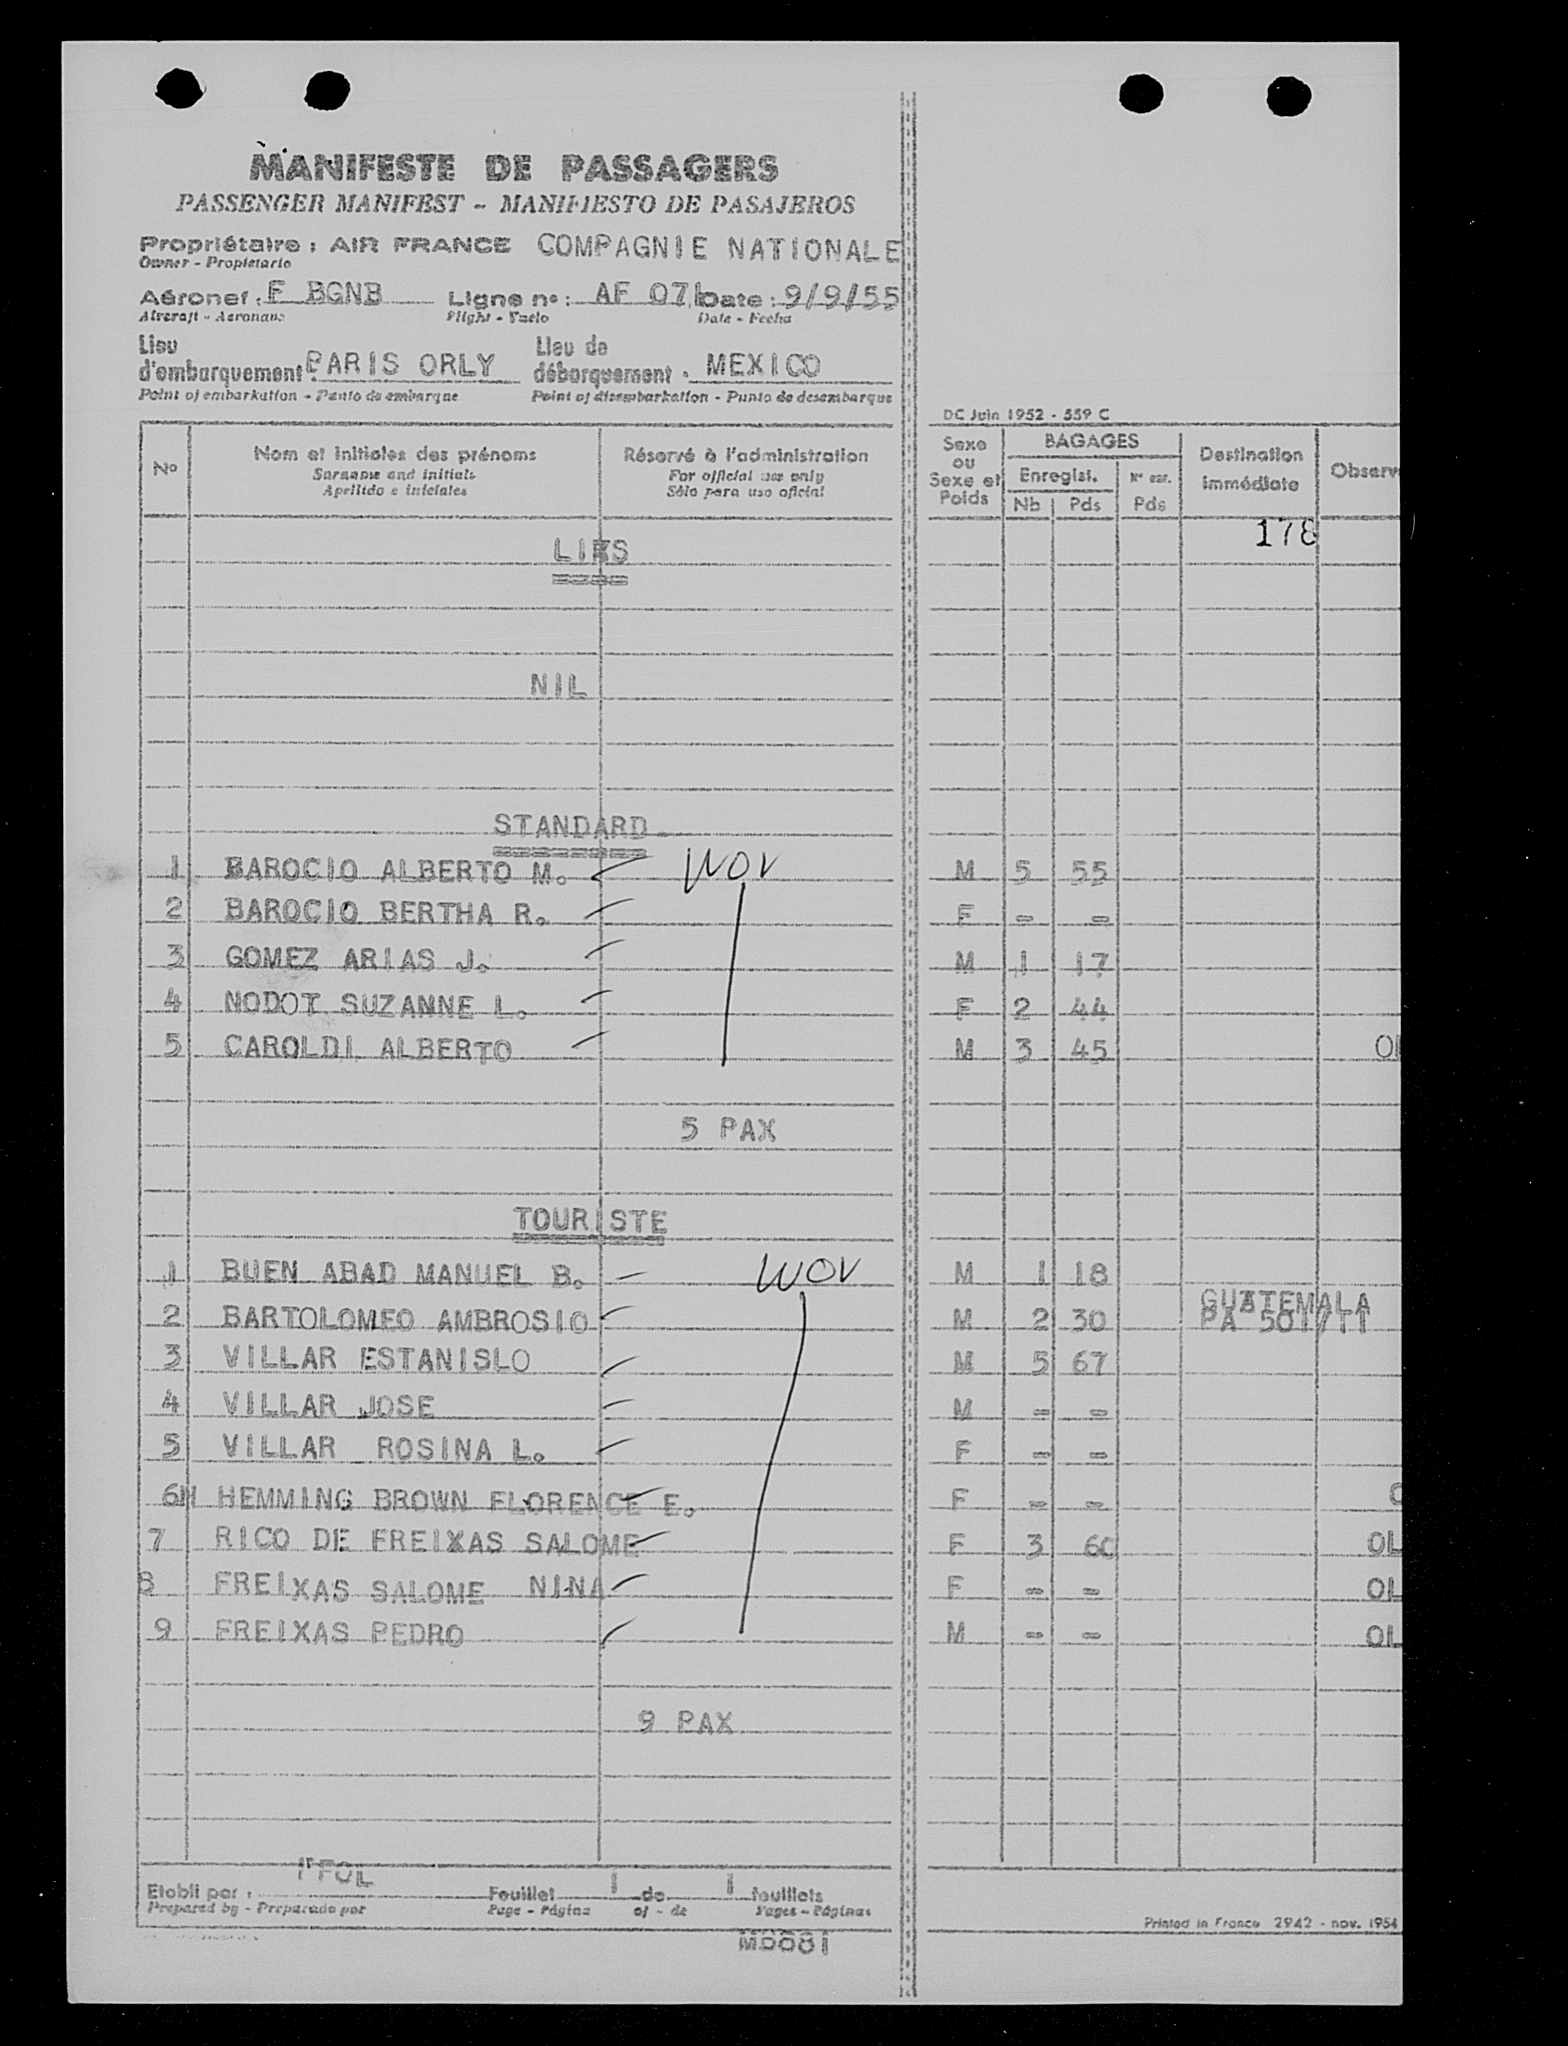 MANIFESTE DE PASSAGERS
PASSENGER MANIFEST - MANIFIESTO DE PASAJEROS
Propriétaire : AIR FRANCE COMPAGNIE NATIONALE
Owner - Propietario
Aéronef : F BGNB Ligne n° : AF 071 Date : 9/9/55
Aircraft - Aeronave Flight - Vuelo Date - Fecha
Lieu d'embarquement : PARIS ORLY Lieu de débarquement : MEXICO
Point of embarkation - Punto de embarque Point of disembarkation - Punto de desembarque
DC Juin 1952 - 559 C
N° Nom et initiales des prénoms Réservé à l'administration Sexe ou Sexe et Poids BAGAGES Destination immédiate Observ
Surname and initials For official use only Enregist.
Apellido e iniciales Sólo para uso oficial Nb Pds Pds
178
STANDARD
1 BAROCIO ALBERTO M. WOV M 5 55
2 BAROCIO BERTHA R. F - -
3 GOMEZ ARIAS J. M 1 17
4 NODOT SUZANNE L. F 2 44
5 CAROLDI ALBERTO M 3 45
NIL
5 PAX
TOURISTE
1 BUEN ABAD MANUEL B. WOV M 1 18
GUATEMALA
2 BARTOLOMEO AMBROSIO M 2 30 PA 501/11
3 VILLAR ESTANISLO M 5 67
4 VILLAR JOSE M - -
5 VILLAR ROSINA L. F - -
6 HEMMING BROWN FLORENCE E. F - -
7 RICO DE FREIXAS SALOME F 3 60 OL
8 FREIXAS SALOME NINA F - - OL
9 FREIXAS PEDRO M - - OL
9 PAX
Etabli par : Feuillet 1 de 1 feuillets
Prepared by - Preparado por Page - Página of - de Pages - Páginas
Printed in France 2942 - nov. 1954